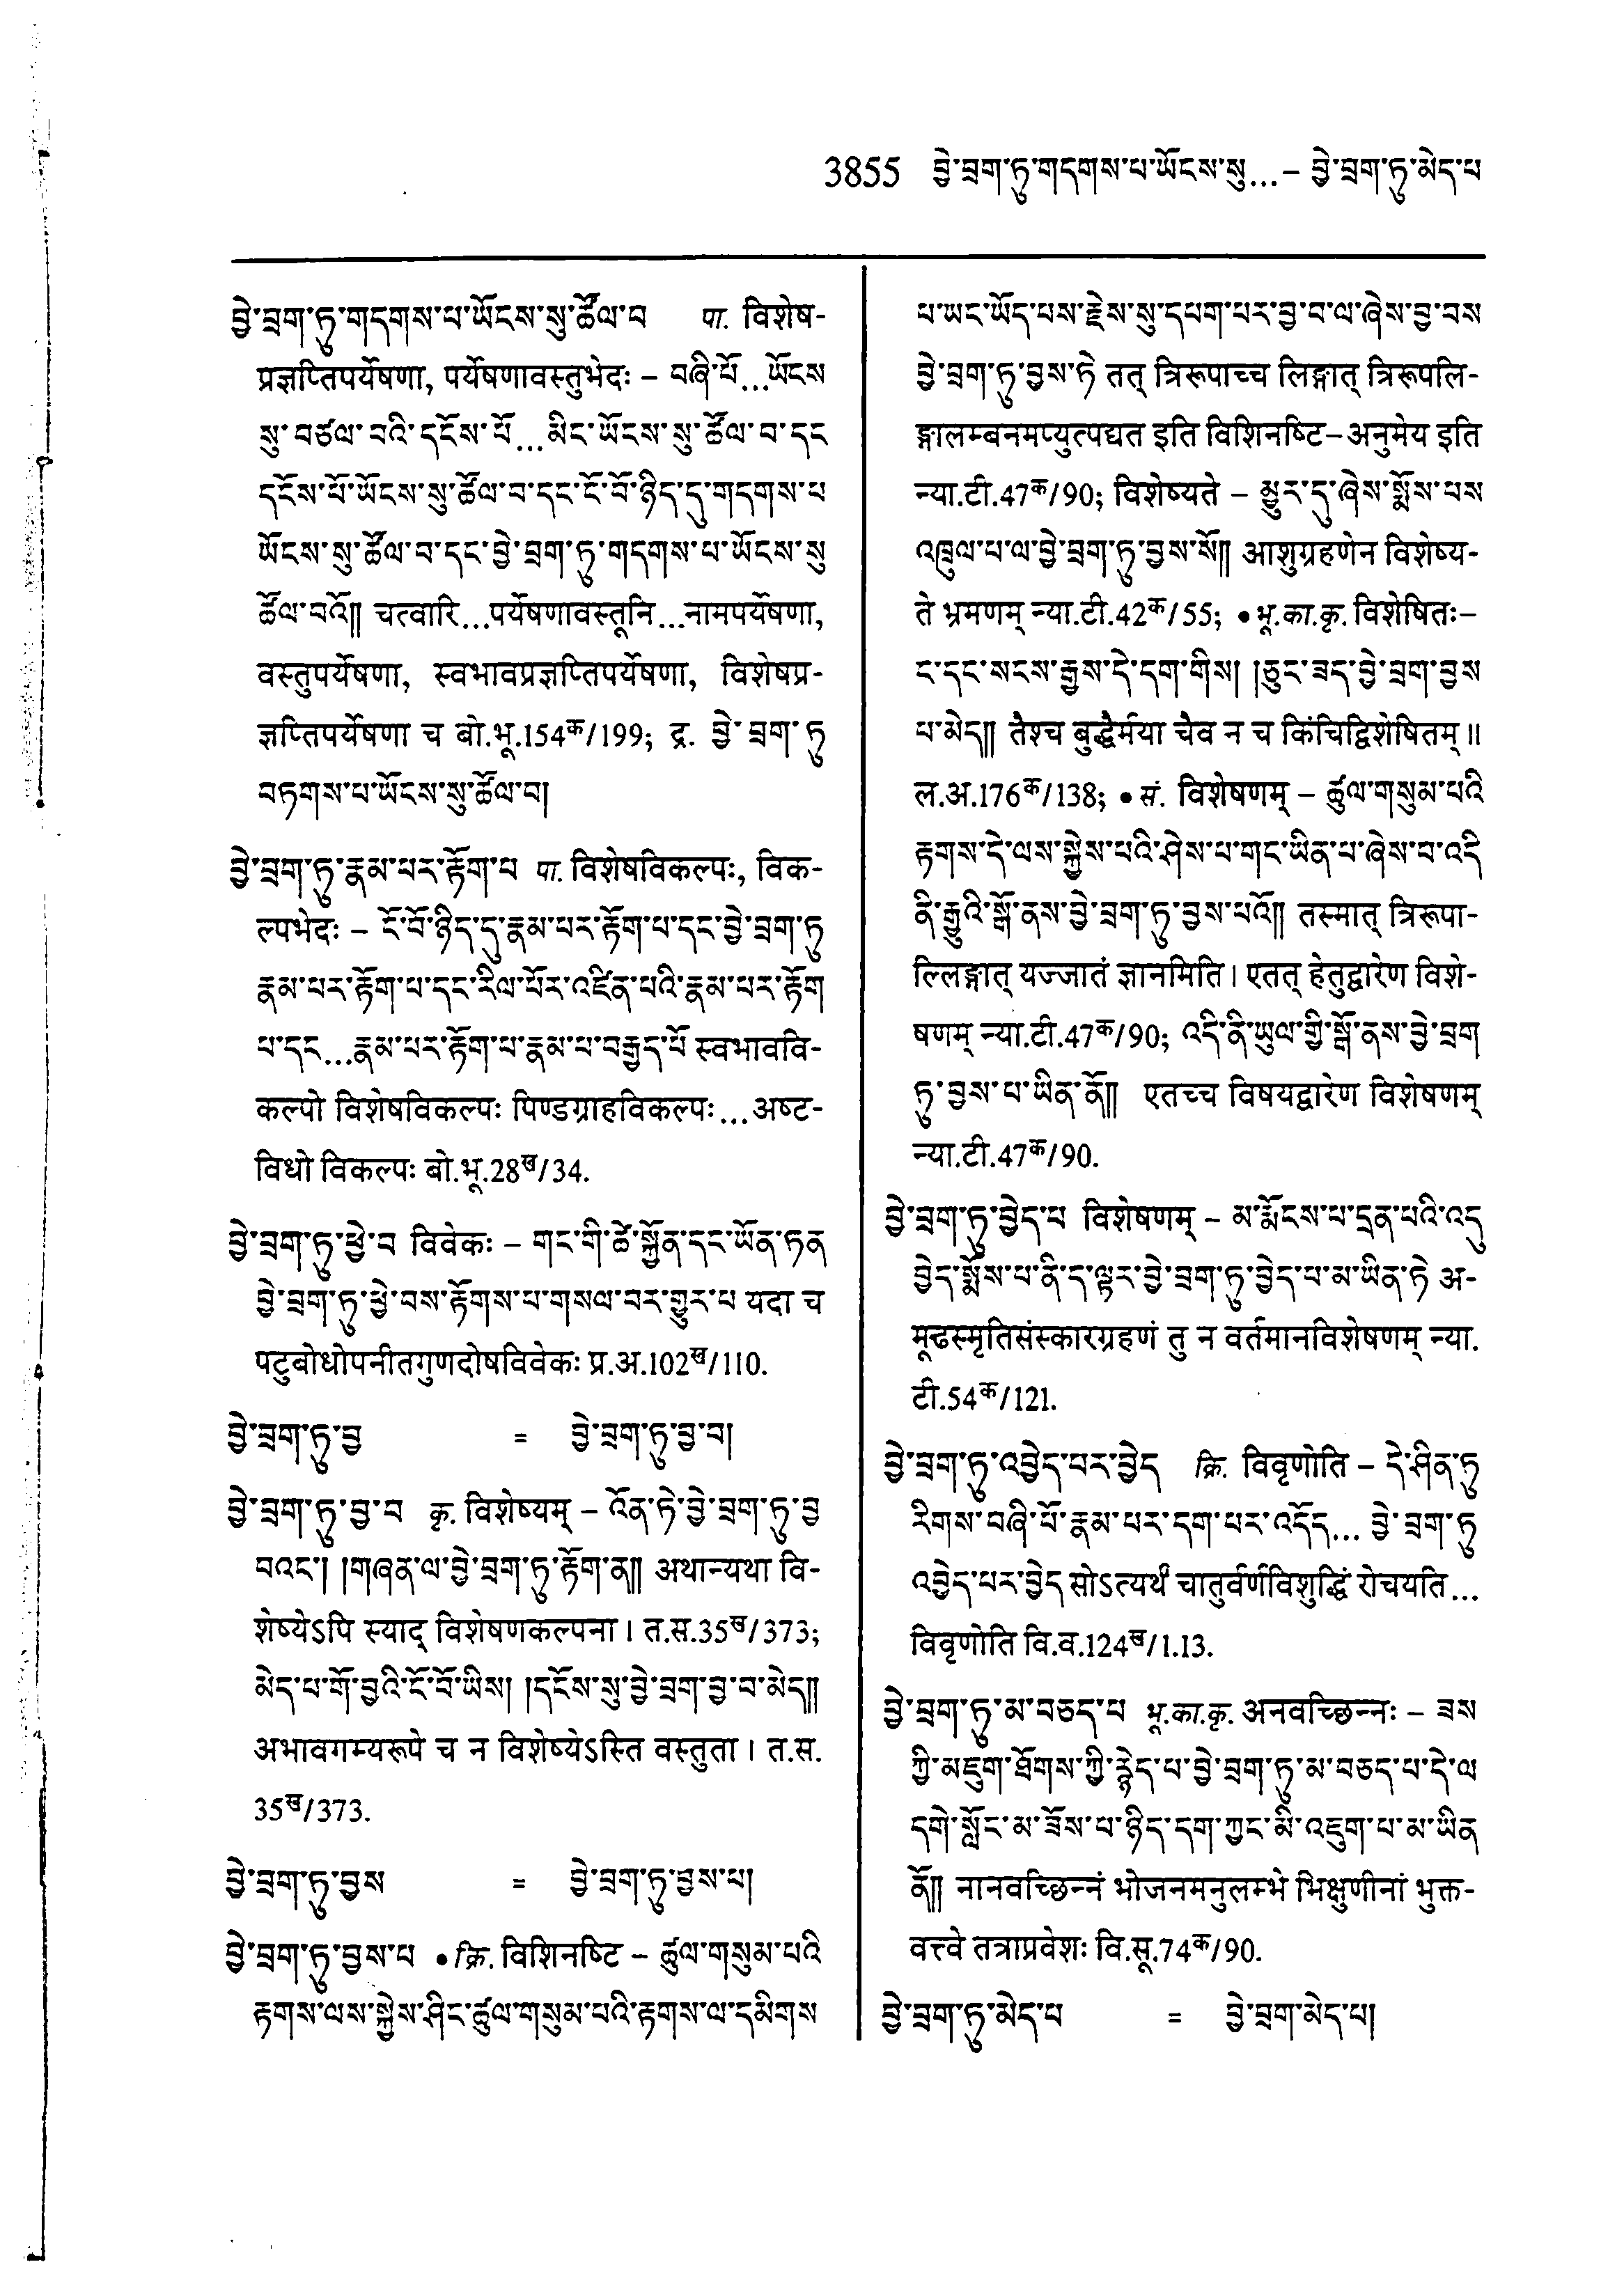 3855 བྱེ་བྲག་ཏུ་གདགས་པ་ཡོངས་སུ...– བྱེ་བྲག་ཏུ་མེད་པ
བྱེ་བྲག་ཏུ་གདགས་པ་ཡོངས་སུ་ཚོལ་བ པा. विशेष-
प्रज्ञप्तिपर्येषणा, पर्येषणावस्तुभेदः – བཞི་པོ...ཡོངས
སུ་བཙལ་བའི་དངོས་པོ...མིང་ཡོངས་སུ་ཚོལ་བ་དང
དངོས་པོ་ཡོངས་སུ་ཚོལ་བ་དང་ངོ་བོ་ཉིད་དུ་གདགས་པ
ཡོངས་སུ་ཚོལ་བ་དང་བྱེ་བྲག་ཏུ་གདགས་པ་ཡོངས་སུ
ཚོལ་བའོ༎ चत्वारि...पर्येषणावस्तूनि...नामपर्येषणा,
वस्तुपर्येषणा, स्वभावप्रज्ञप्तिपर्येषणा, विशेषप्र-
ज्ञप्तिपर्येषणा च बो.भू.154क/199; द्र. བྱེ་བྲག་ཏུ
བཏགས་པ་ཡོངས་སུ་ཚོལ་བ།
བྱེ་བྲག་ཏུ་རྣམ་པར་རྟོག་པ पा. विशेषविकल्पः, विक-
ल्पभेदः – ངོ་བོ་ཉིད་དུ་རྣམ་པར་རྟོག་པ་དང་བྱེ་བྲག་ཏུ
རྣམ་པར་རྟོག་པ་དང་རིལ་པོར་འཛིན་པའི་རྣམ་པར་རྟོག
པ་དང...རྣམ་པར་རྟོག་པ་རྣམ་པ་བརྒྱད་པོ स्वभाववि-
कल्पो विशेषविकल्पः पिण्डग्राहविकल्पः...अष्ट-
विधो विकल्पः बो.भू.28ख/34.
བྱེ་བྲག་ཏུ་ཕྱེ་བ विवेकः – གང་གི་ཚེ་སྐྱོན་དང་ཡོན་ཏན
བྱེ་བྲག་ཏུ་ཕྱེ་བས་རྟོགས་པ་གསལ་བར་གྱུར་པ यदा च
पटुबोधोपनीतगुणदोषविवेकः प्र.अ.102ख/110.
བྱེ་བྲག་ཏུ་བྱ = བྱེ་བྲག་ཏུ་བྱ་བ།
བྱེ་བྲག་ཏུ་བྱ་བ कृ. विशेष्यम् – འོན་ཏེ་བྱེ་བྲག་ཏུ་བྱ
བའང༌། །གཞན་ལ་བྱེ་བྲག་ཏུ་རྟོག་ན༎ अथान्यथा वि-
शेष्येऽपि स्याद् विशेषणकल्पना । त.स.35ख/373;
མེད་པ་གོ་བྱའི་ངོ་བོ་ཡིས། །དངོས་སུ་བྱེ་བྲག་བྱ་བ་མེད༎
अभावगम्यरूपे च न विशेष्येऽस्ति वस्तुता । त.स.
35ख/373.
བྱེ་བྲག་ཏུ་བྱས = བྱེ་བྲག་ཏུ་བྱས་པ།
བྱེ་བྲག་ཏུ་བྱས་པ • क्रि. विशिनष्टि – ཚུལ་གསུམ་པའི
རྟགས་ལས་སྐྱེས་ཤིང་ཚུལ་གསུམ་པའི་རྟགས་ལ་དམིགས
པ་ཡང་ཡོད་པས་རྗེས་སུ་དཔག་པར་བྱ་བ་ལ་ཞེས་བྱ་བས
བྱེ་བྲག་ཏུ་བྱས་ཏེ तत् त्रिरूपाच्च लिङ्गात् त्रिरूपलि-
ङ्गालम्बनमप्युत्पद्यत इति विशिनष्टि–अनुमेय इति
न्या.टी.47क/90; विशेष्यते – མྱུར་དུ་ཞེས་སྨོས་པས
འཁྲུལ་པ་ལ་བྱེ་བྲག་ཏུ་བྱས་སོ༎ आशुग्रहणेन विशेष्य-
ते भ्रमणम् न्या.टी.42क/55; • भू.का.कृ. विशेषितः–
ང་དང་སངས་རྒྱས་དེ་དག་གིས། །ཅུང་ཟད་བྱེ་བྲག་བྱས
པ་མེད༎ तैश्च बुद्धैर्मया चैव न च किंचिद्विशेषितम् ॥
ल.अ.176क/138; • सं. विशेषणम् – ཚུལ་གསུམ་པའི
རྟགས་དེ་ལས་སྐྱེས་པའི་ཤེས་པ་གང་ཡིན་པ་ཞེས་བ་འདི
ནི་རྒྱུའི་སྒོ་ནས་བྱེ་བྲག་ཏུ་བྱས་པའོ༎ तस्मात् त्रिरूपा-
ल्लिङ्गात् यज्जातं ज्ञानमिति । एतत् हेतुद्वारेण विशे-
षणम् न्या.टी.47क/90; འདི་ནི་ཡུལ་གྱི་སྒོ་ནས་བྱེ་བྲག
ཏུ་བྱས་པ་ཡིན་ནོ༎ एतच्च विषयद्वारेण विशेषणम्
न्या.टी.47क/90.
བྱེ་བྲག་ཏུ་བྱེད་པ विशेषणम् – མ་རྨོངས་པ་དྲན་པའི་འདུ
བྱེད་སྨོས་པ་ནི་ད་ལྟར་བྱེ་བྲག་ཏུ་བྱེད་པ་མ་ཡིན་ཏེ अ-
मूढस्मृतिसंस्कारग्रहणं तु न वर्तमानविशेषणम् न्या.
टी.54क/121.
བྱེ་བྲག་ཏུ་འབྱེད་པར་བྱེད क्रि. विवृणोति – དེ་ཤིན་ཏུ
རིགས་བཞི་པོ་རྣམ་པར་དག་པར་འདོད... བྱེ་བྲག་ཏུ
འབྱེད་པར་བྱེད सोऽत्यर्थं चातुर्वर्णविशुद्धिं रोचयति...
विवृणोति वि.व.124ख/1.13.
བྱེ་བྲག་ཏུ་མ་བཅད་པ भू.का.कृ. अनवच्छिन्नः – ཟས
ཀྱི་མཇུག་ཐོགས་ཀྱི་རྙེད་པ་བྱེ་བྲག་ཏུ་མ་བཅད་པ་དེ་ལ
དགེ་སློང་མ་ཟོས་པ་ཉིད་དག་ཀྱང་མི་འཇུག་པ་མ་ཡིན
ནོ༎ नानवच्छिन्नं भोजनमनुलम्भे भिक्षुणीनां भुक्त-
वत्त्वे तत्राप्रवेशः वि.सू.74क/90.
བྱེ་བྲག་ཏུ་མེད་པ = བྱེ་བྲག་མེད་པ།